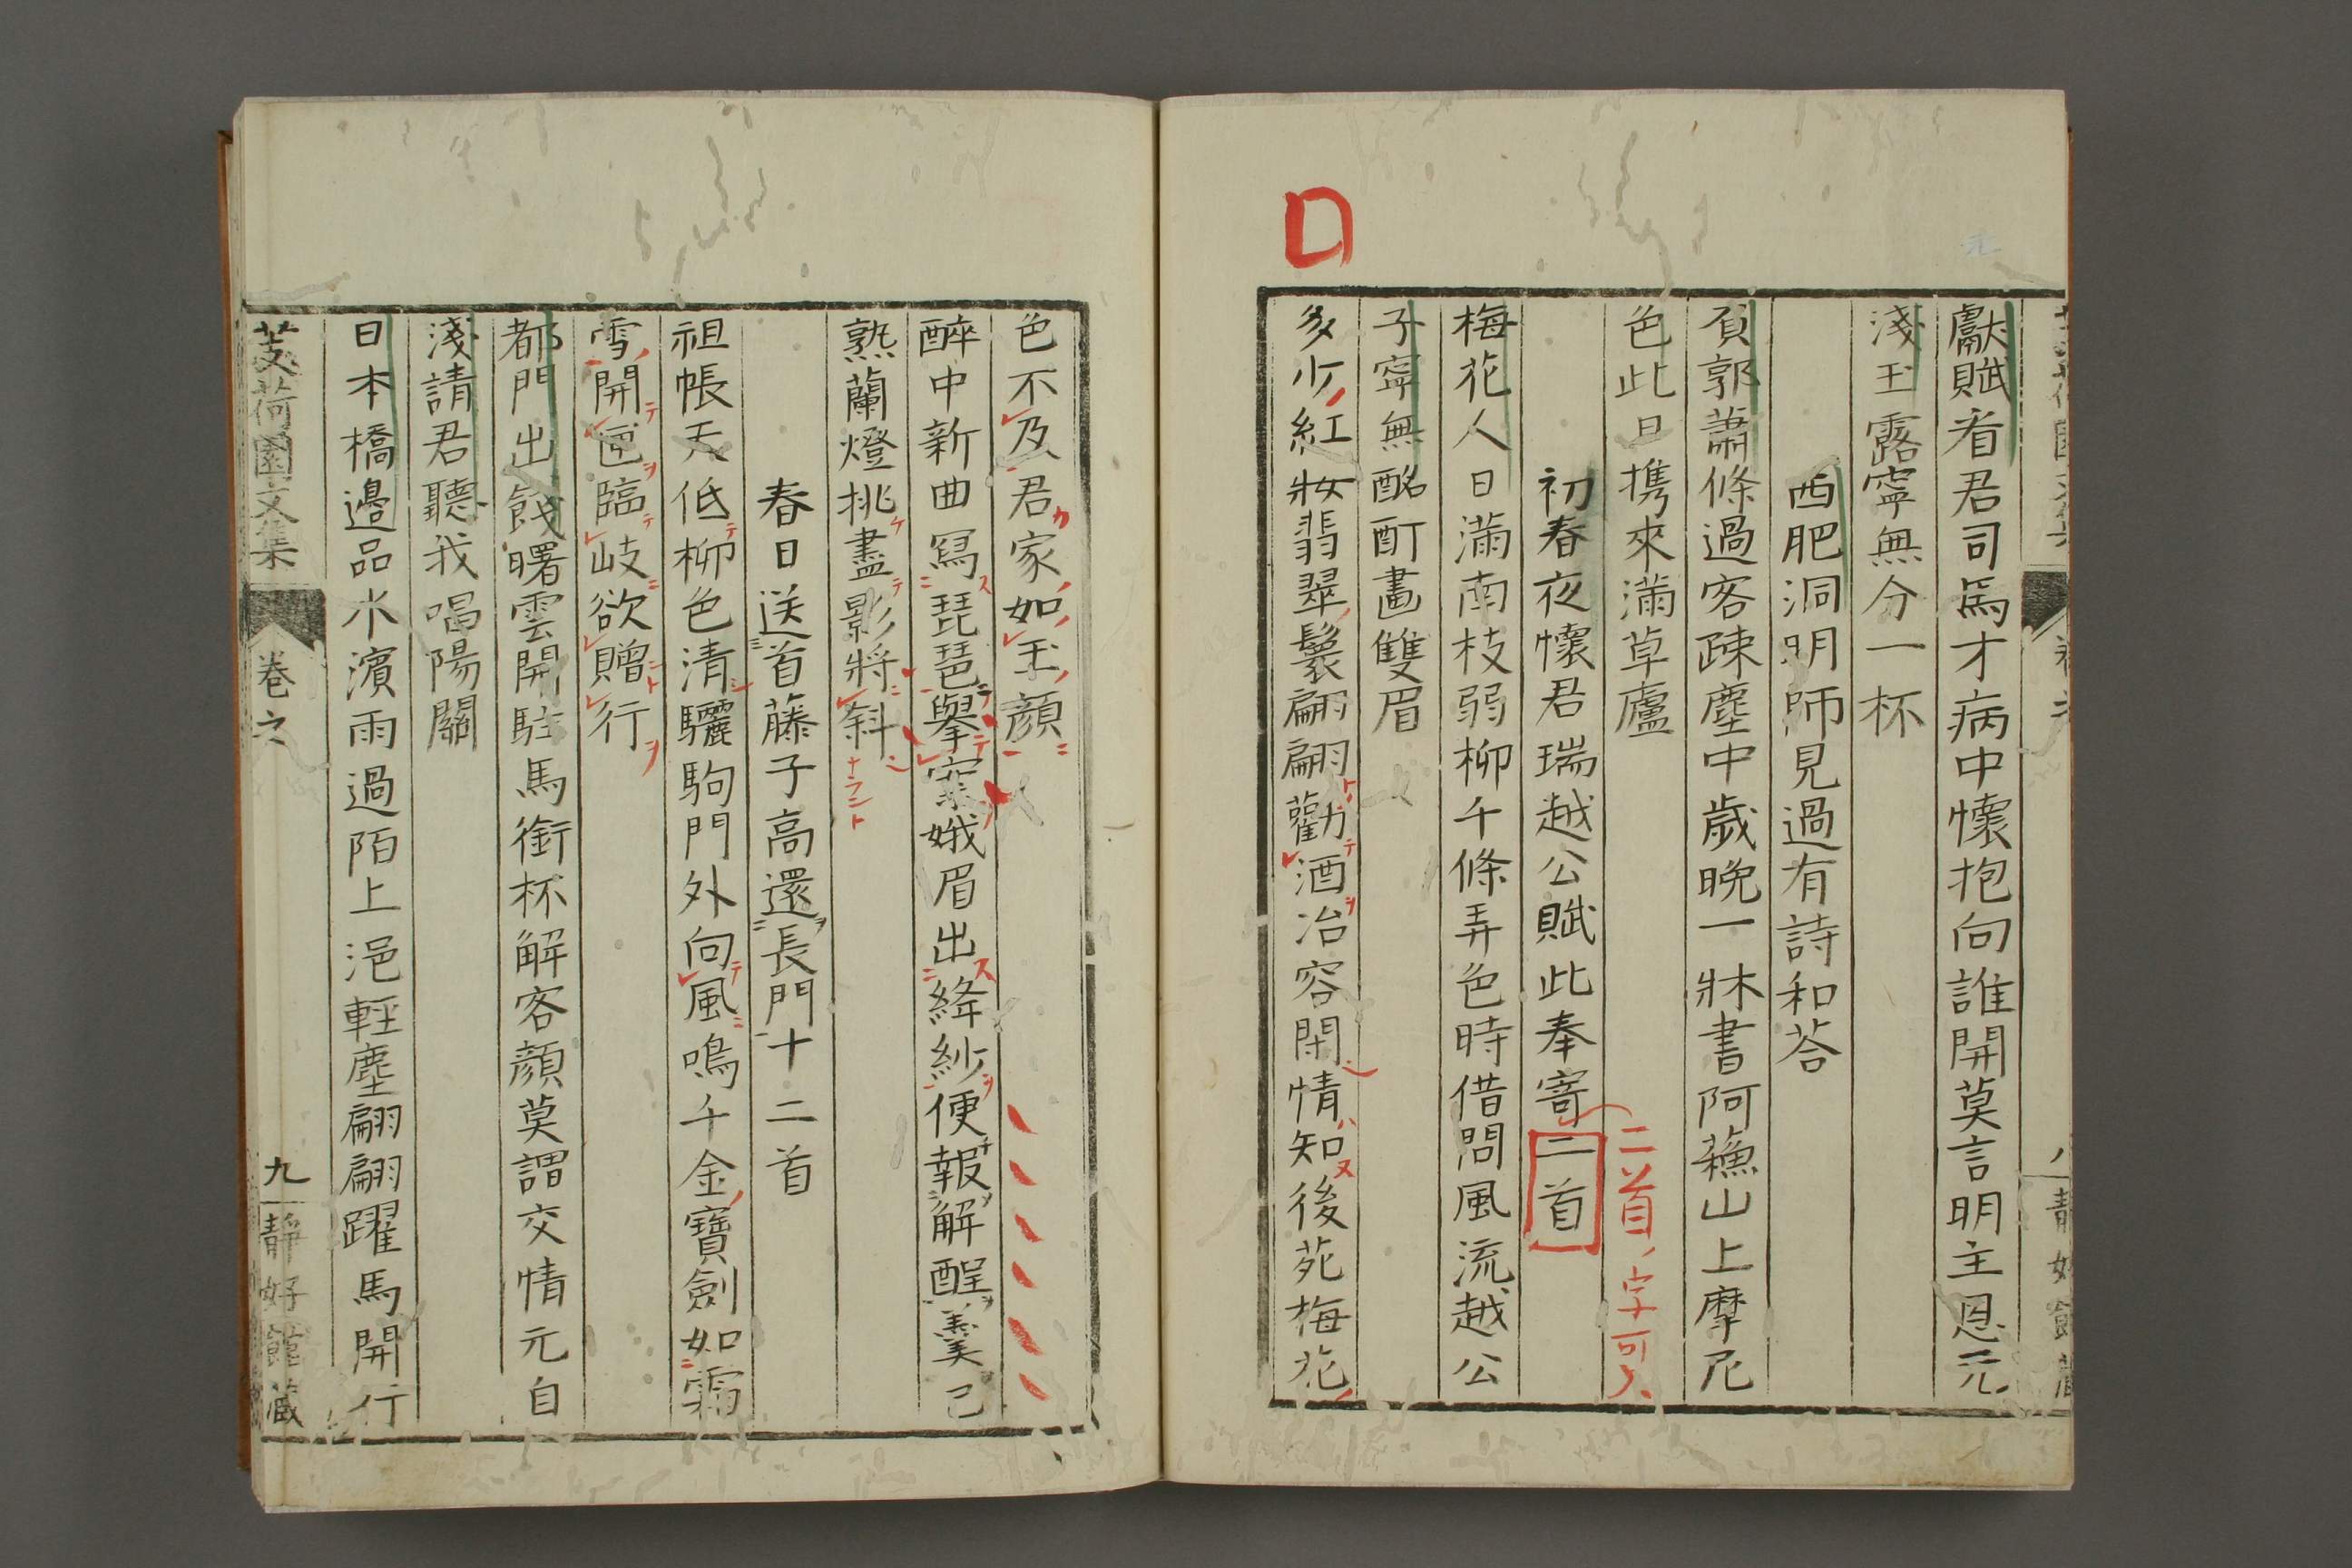 獻賦看君司馬才病中懷抱向誰開莫言明主恩元
淺玉露寧無分一杯
西肥洞明師見過有詩和荅
負郭蕭條過客疎塵中歲晚一牀書阿蘓山上摩尼
色此日携來滿草廬
初春夜懷君瑞越公賦此奉寄二首
二首ノ字可入
梅花人日滿南枝弱柳千條弄色時借問風流越公
子寧無酩酊畵雙眉
多少紅妝翡翠鬟翩翩勸酒冶容閑情知後苑梅花
色不及君家如玉顔
醉中新曲冩琵琶擧案娥眉出絳紗便報解酲羹已
熟蘭燈挑盡影將斜
春日送首藤子高還長門十二首
祖帳天低柳色清驪駒門外向風鳴千金寶劍如霜
雪開匣臨岐欲贈行
都門出餞曙雲開駐馬銜杯解客顔莫謂交情元自
淺請君聽我唱陽關
日本橋邉品水濱雨過陌上浥輕塵翩翩躍馬開行
芰荷園文集
卷之
九
靜好館藏